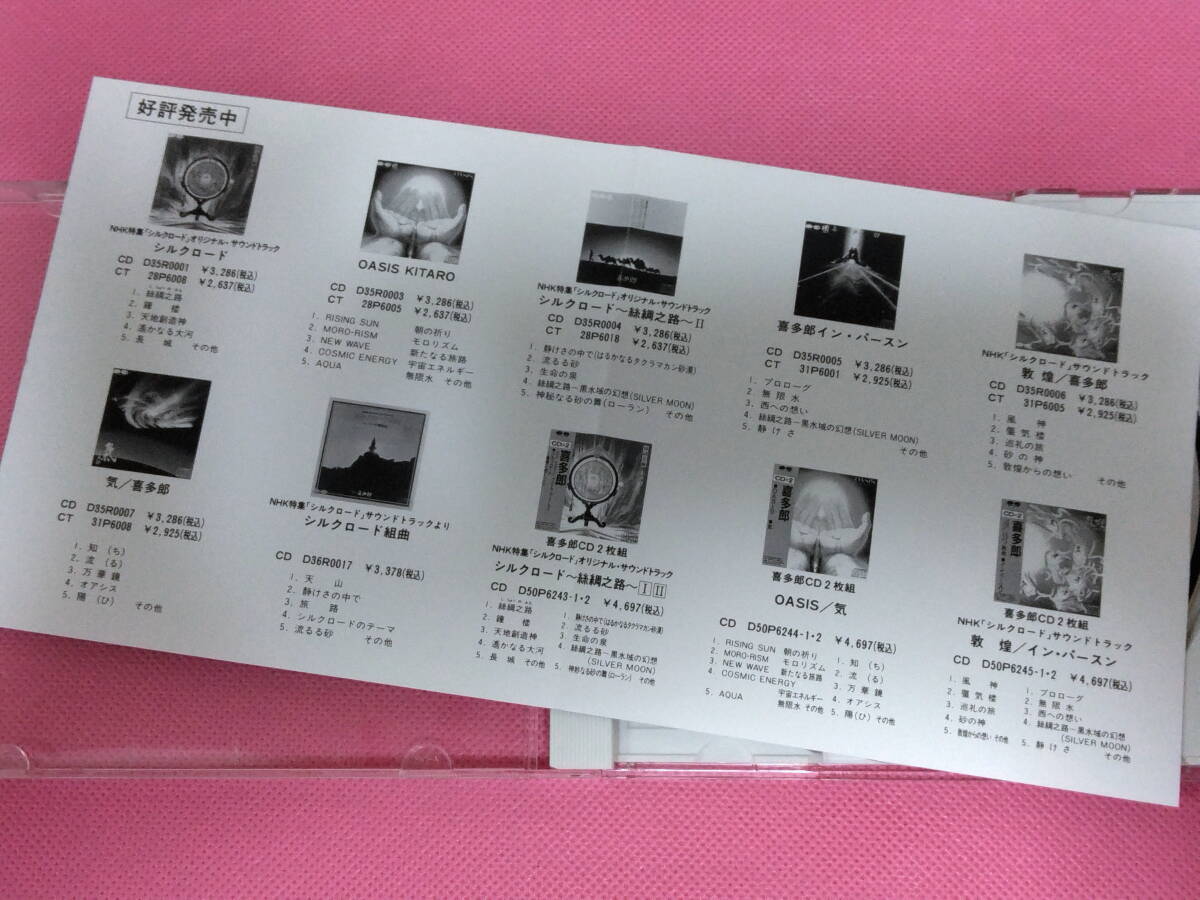 好評発売中
NHK特集「シルクロード」オリジナル・サウンドトラック
シルクロード
CD D35R0001 ¥3,286(税込)
CT 28P6008 ¥2,637(税込)
1. 絲綢之路
2. 鐘楼
3. 天地創造神
4. 遙かなる大河
5. 長城 その他
OASIS KITARO
CD D35R0003 ¥3,286(税込)
CT 28P6005 ¥2,637(税込)
1. RISING SUN 朝の祈り
2. MORO-RISM モロリズム
3. NEW WAVE 新たなる旅路
4. COSMIC ENERGY 宇宙エネルギー
5. AQUA 無限水 その他
NHK特集「シルクロード」オリジナル・サウンドトラック
シルクロード〜絲綢之路〜II
CD D35R0004 ¥3,286(税込)
CT 28P6018 ¥2,637(税込)
1. 静けさの中で(はるかなるタクラマカン砂漠)
2. 流るる砂
3. 生命の泉
4. 絲綢之路−黒水城の幻想(SILVER MOON)
5. 神秘なる砂の舞(ローラン) その他
喜多郎イン・パースン
CD D35R0005 ¥3,286(税込)
CT 31P6001 ¥2,925(税込)
1. プロローグ
2. 無限水
3. 西への想い
4. 絲綢之路−黒水城の幻想(SILVER MOON)
5. 静けさ その他
NHK「シルクロード」サウンドトラック
敦煌/喜多郎
CD D35R0006 ¥3,286(税込)
CT 31P6005 ¥2,925(税込)
1. 風神
2. 蜃気楼
3. 巡礼の旅
4. 砂の神
5. 敦煌からの想い その他
気/喜多郎
CD D35R0007 ¥3,286(税込)
CT 31P6008 ¥2,925(税込)
1. 知(ち)
2. 流(る)
3. 万華鏡
4. オアシス
5. 陽(ひ) その他
NHK特集「シルクロード」サウンドトラックより
シルクロード組曲
CD D36R0017 ¥3,378(税込)
1. 天山
2. 静けさの中で
3. 旅路
4. シルクロードのテーマ
5. 流るる砂 その他
CD-2
喜多郎
喜多郎CD2枚組
NHK特集「シルクロード」オリジナル・サウンドトラック
シルクロード〜絲綢之路〜I II
CD D50P6243-1・2 ¥4,697(税込)
1. 絲綢之路
2. 鐘楼
3. 天地創造神
4. 遙かなる大河
5. 長城 その他
1. 静けさの中で(はるかなるタクラマカン砂漠)
2. 流るる砂
3. 生命の泉
4. 絲綢之路−黒水城の幻想
(SILVER MOON)
5. 神妙なる砂の舞(ローラン) その他
CD-2
喜多郎
喜多郎CD2枚組
OASIS/気
CD D50P6244-1・2 ¥4,697(税込)
1. RISING SUN 朝の祈り
2. MORO-RISM モロリズム
3. NEW WAVE 新たなる旅路
4. COSMIC ENERGY
宇宙エネルギー
5. AQUA 無限水 その他
1. 知(ち)
2. 流(る)
3. 万華鏡
4. オアシス
5. 陽(ひ) その他
CD-2
喜多郎
喜多郎CD2枚組
NHK「シルクロード」サウンドトラック
敦煌/イン・パースン
CD D50P6245-1・2 ¥4,697(税込)
1. 風神
2. 蜃気楼
3. 巡礼の旅
4. 砂の神
5. 敦煌からの想い その他
1. プロローグ
2. 無限水
3. 西への想い
4. 絲綢之路−黒水城の幻想
(SILVER MOON)
5. 静けさ その他